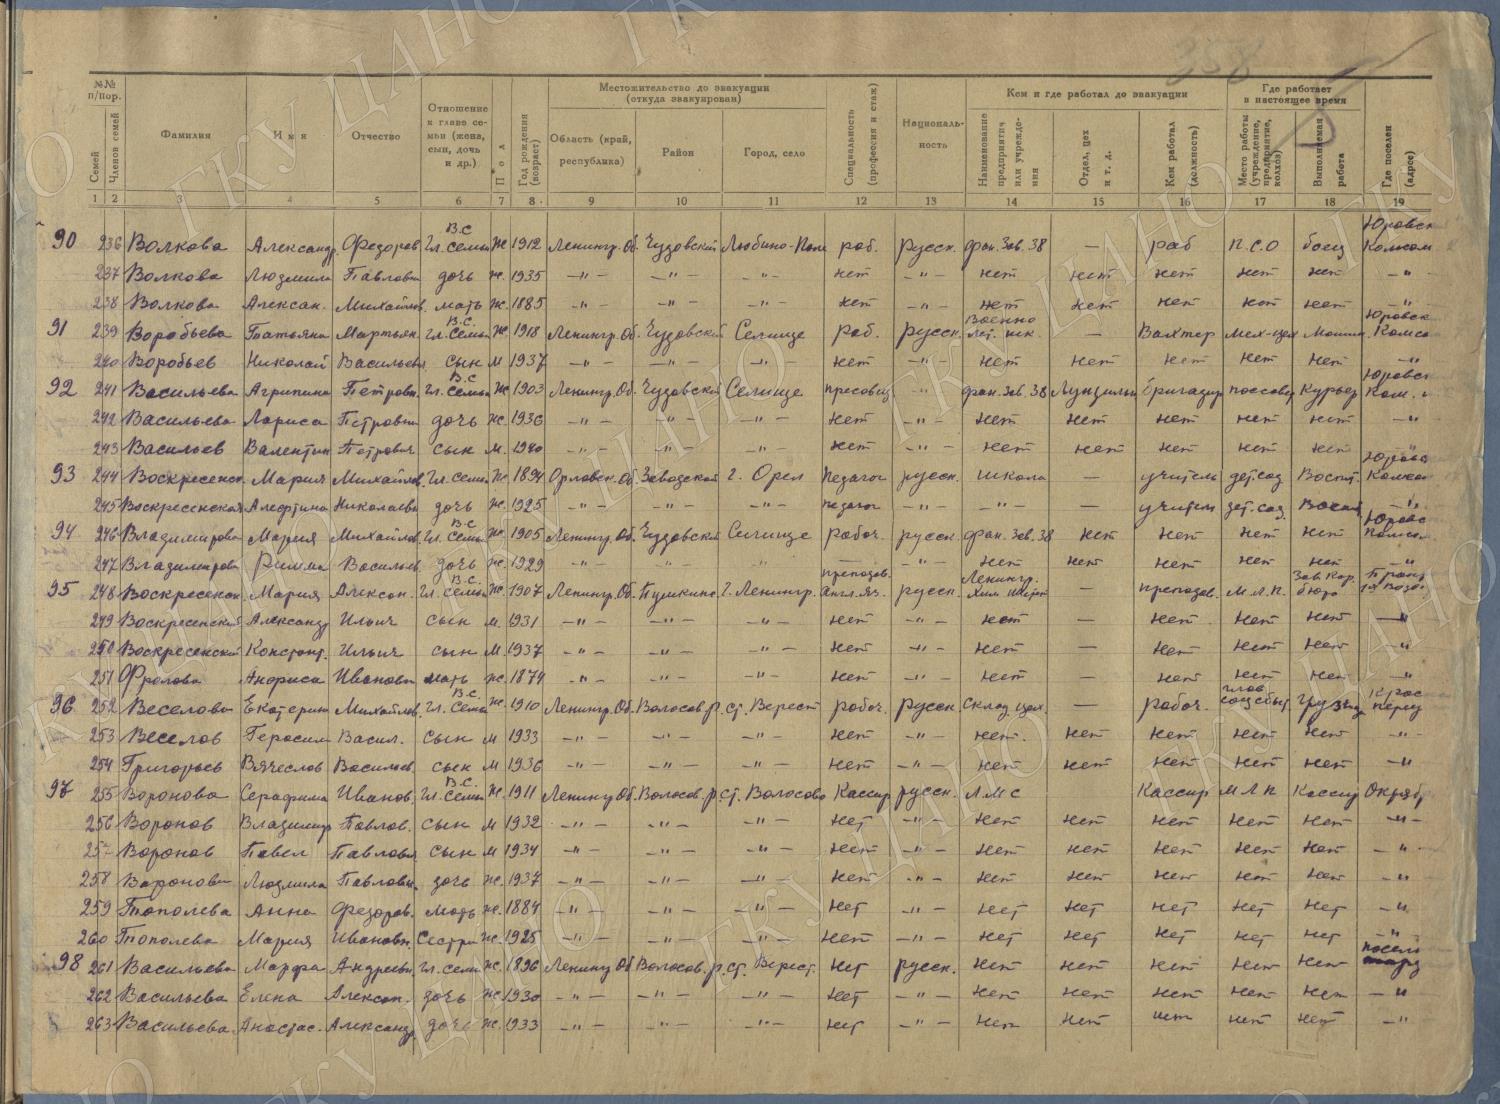 358
№№ п/пор.
Семей
Членов семей
Фамилия
Имя
Отчество
Отношение к главе семьи (жена, сын, дочь и др.)
Пол
Год рождения (возраст)
Местожительство до эвакуации (откуда эвакуирован)
Область (край, республика)
Район
Город, село
Специальность (профессия и стаж)
Националь-ность
Кем и где работал до эвакуации
Наименование предприятия или учрежде-ния
Отдел, цех и т. д.
Кем работал (должность)
Где работает в настоящее время
Место работы (учреждение, предприятие, колхоз)
Выполняемая работа
Где поселен (адрес)
1 2 3 4 5 6 7 8 9 10 11 12 13 14 15 16 17 18 19
90 236 Волкова Александр. Федоров. В.С. Гл. семьи ж 1912 Ленингр. Об. Чудовский Любино-Поле раб. русск. фан. зав. 38 — раб П.С.О боец Юровск Комсом
237 Волкова Людмила Павловн дочь ж. 1935 —"— —"— —"— нет —"— нет нет нет нет нет —"—
238 Волкова Алексан. Михайлов. мать ж. 1885 —"— —"— —"— нет —"— нет нет нет нет нет —"—
91 239 Воробьева Татьяна Мартын В.С. Гл. семьи ж 1918 Ленингр. Об. Чудовский Селище Раб. русск. Военно лет. шк. — Вахтер Мех-цех Юровск Комсо
240 Воробьев Николай Васильев сын м 1937 —"— —"— —"— нет —"— нет нет нет нет нет —"—
92 241 Васильева Агрипина Петровн. В.С. Гл. семьи ж 1903 Ленингр. Об. Чудовский Селище пресовщ —"— фан. зав. 38 бригадир поссовет курьер Юровск Ком.
242 Васильева Лариса Петровн дочь ж. 1936 —"— —"— —"— нет —"— нет нет нет нет нет —"—
243 Васильев Валентин Петрович сын м. 1940 —"— —"— —"— нет —"— нет нет нет нет нет —"—
93 244 Воскресенск. Мария Михайлов. Гл. семьи ж 1894 Орловск. Об. Заводской г. Орел Педагог русск. школа — учитель дет. сад Воспит. Юровск Комсо
245 Воскресенская Алефтина Николаевн дочь ж. 1925 —"— —"— —"— педагог —"— —"— — учитель дет. сад. Воспит —"—
94 246 Владимирова Мария Михайлов. В.С. Гл. семьи ж. 1905 Ленингр. Об. Чудовский Селище рабоч. русск. фан. зав. 38 нет нет нет нет Юровс Комсом
247 Владимирова Римма Васильев дочь ж. 1929 —"— —"— —"— — —"— нет нет нет нет нет —"—
95 248 Воскресенск. Мария Алексан. В.С. Гл. семьи ж. 1907 Ленингр. Об. Пушкино г. Ленингр. преподов. Англ. яз. русск. Ленингр. Хим — преподов. М.Л.П. Зав. Кар. бюро
249 Воскресенский Александр Ильич сын м. 1931 —"— —"— —"— нет —"— нет — нет нет нет —"—
250 Воскресенский Констант. Ильич сын м 1937 —"— —"— —"— нет —"— нет — нет нет нет —"—
251 Фролова Анфиса Ивановн мать ж. 1874 —"— —"— —"— нет —"— нет — нет нет нет —"—
96 252 Веселова Екатерин Михайлов. В.С. Гл. семьи ж. 1910 Ленингр. Об. Волосов. р. ст. Верест рабоч. русск. Склад цех. — рабоч. грузчик Крас перед
253 Веселов Герасим Васил. сын м 1933 —"— —"— —"— нет —"— нет. нет нет нет нет —"—
254 Григорьев Вячеслов Васильев. сын м 1936 —"— —"— —"— нет —"— нет нет нет нет нет —"—
97 255 Воронова Серафима Иванов. В.С. Гл. семьи ж. 1911 Ленингр Об. Волосов. р. ст. Волосово Кассир русск. Л.М.С Кассир МЛП Кассир Октябр
256 Воронов Владимир Павлов. сын м 1932 —"— —"— —"— нет —"— нет нет нет нет нет —"—
257 Воронов Павел Павлович сын м 1934 —"— —"— —"— нет —"— нет нет нет нет нет —"—
258 Воронова Людмила Павловн. дочь ж. 1937 —"— —"— —"— нет —"— нет нет нет нет нет —"—
259 Тополева Анна Федоров. мать ж. 1884 —"— —"— —"— нет —"— нет нет нет нет нет —"—
260 Тополева Мария Ивановн. Сестра ж. 1925 —"— —"— —"— нет —"— нет нет нет нет нет —"—
98 261 Васильева Марфа Андреевн. Гл. семьи ж. 1896 Ленингр Об Волосов. р. ст. Верест. нет русск. нет нет нет нет нет поселк
262 Васильева Елена Алексан. дочь ж 1930 —"— —"— —"— нет —"— нет нет нет нет нет —"—
263 Васильева Анастас. Александр дочь ж. 1933 —"— —"— —"— нет —"— нет нет нет нет нет —"—
ГКУ ЦАНО